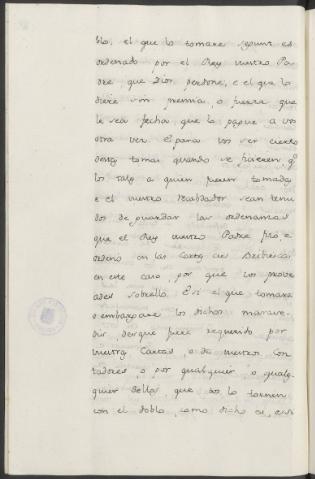 blo, el que lo tomare segunt es
ordenado por el Rey vuestro Pa
dre, que Dios perdone, e el que lo
diere sin premia, o fuerza que
le sea fecha, que lo pague a vos
otra vez. E para vos ser cierto
destas tomas quando se ficieren q.º
los tales a quien fueren tomadas
e el vuestro Recabdador sean tenu
dos de guardar las ordenanzas
que el Rey vuestro Padre fizo e
ordenó en las Cortes de Bribiesca
en este caso, por que vos provea
ades sobrello. E si el que tomare
o embargare los dichos marave
dis desque fuere requerido por
vuestras Cartas, o de vuestros Con
tadores, o por qualquier, o qualq
quier dellas, que vos lo tornen
con el doblo, como dicho es, e si